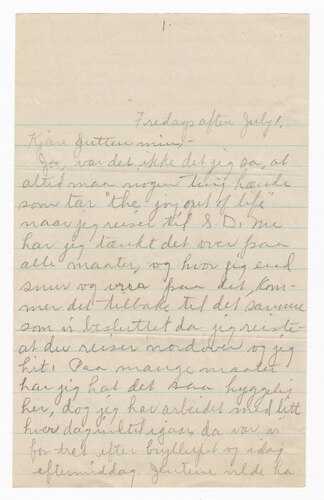 1.
Fredags aften July 1.
Kjære Gutten min,-
Ja, var det ikke det jeg sa, at
altid maa nogen ting hænde
som tar "the joy out of life"
naar jeg reiser til S. D. Nu
har jeg tænkt det over paa
alle maater, og hvor jeg end
snur og vrir paa det, kom-
mer det tilbake til det samme
som vi besluttet da jeg reiste-
at du reiser nordover og jeg
hit! Paa mange maater
har jeg hat det saa hyggelig
her, dog jeg har arbeidet med litt
hver dag indtil igaar da var vi
for træt efter bryllupet og idag
eftermiddag. Jentene vilde ha